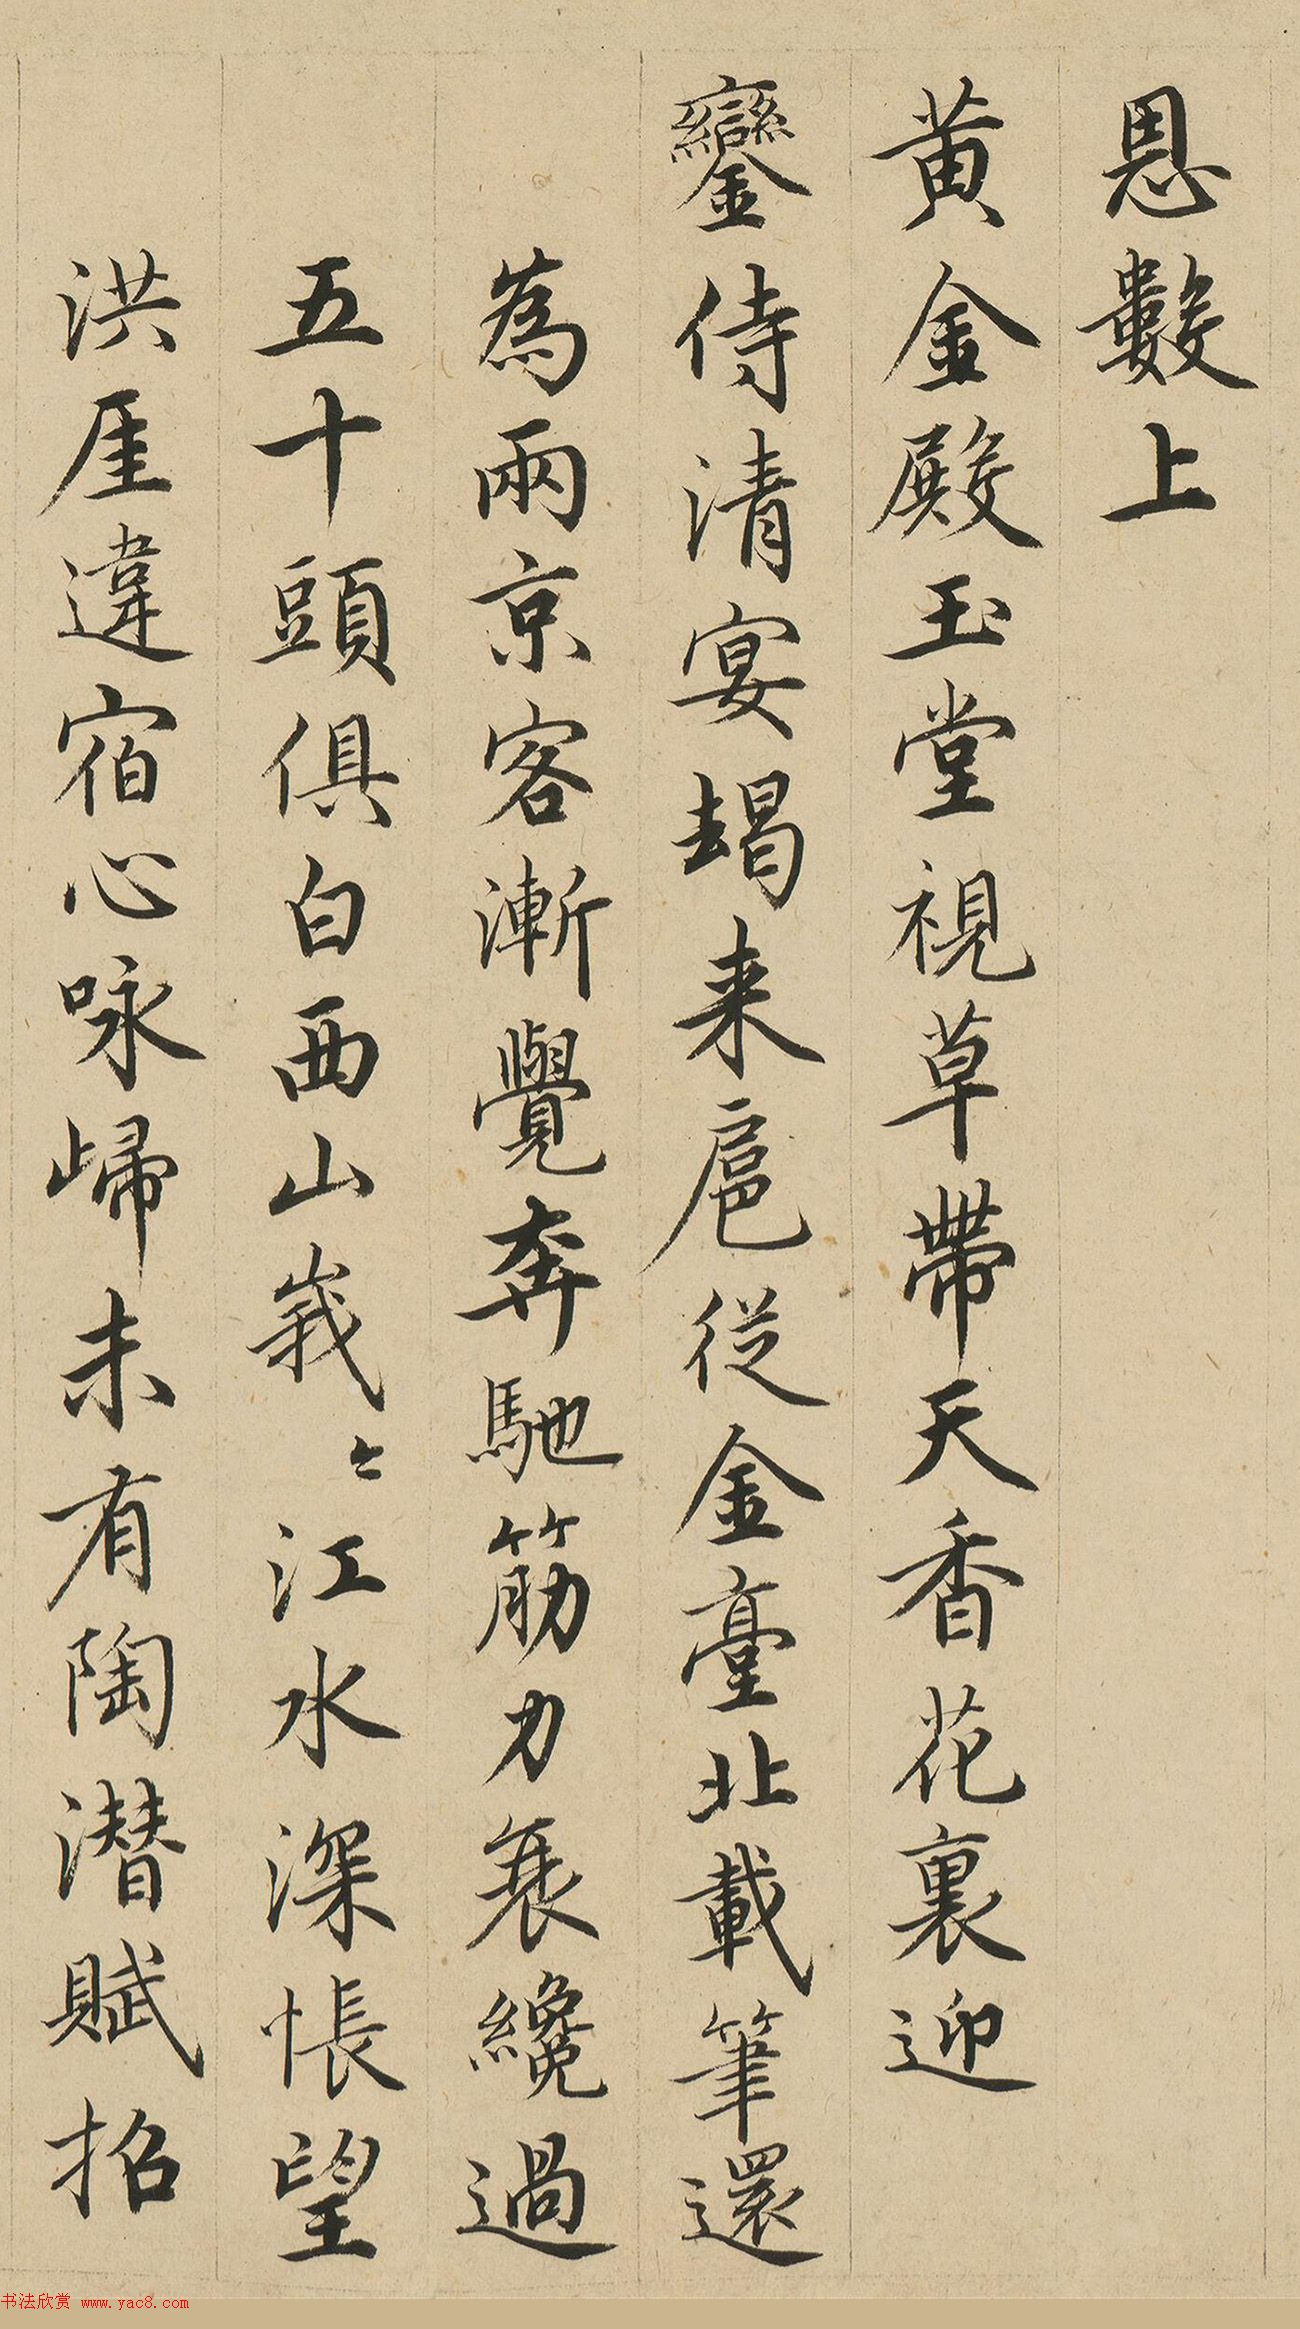 恩數上
黃金殿玉堂視草帶天香花裏迎
鑾侍清宴朅来扈從金臺北載筆還
為兩京客漸覺奔馳筋力衰纔過
五十頭俱白西山峩〻江水深悵望
洪厓違宿心咏歸未有陶潛賦招
书法欣赏 www.yac8.com